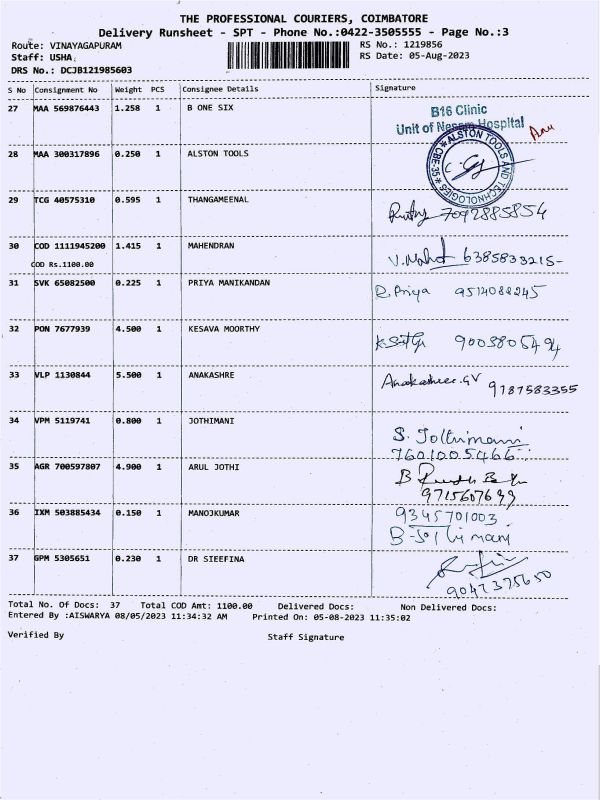 THE PROFESSIONAL COURIERS, COIMBATORE
Delivery Runsheet - SPT - Phone No.:0422-3505555 - Page No.:3
Route: VINAYAGAPURAM RS No.: 1219856
Staff: USHA RS Date: 05-Aug-2023
DRS No.: DCJB121985603
S No Consignment No Weight PCS Consignee Details Signature
27 MAA 569876443 1.258 1 B ONE SIX
B16 Clinic
Unit of Nesam Hospital
28 MAA 300317896 0.250 1 ALSTON TOOLS
ALSTON TOOLS AND TECHNOLOGIES CBE-35
29 TCG 40575310 0.595 1 THANGAMEENAL
7092885854
30 COD 1111945200 1.415 1 MAHENDRAN
COD Rs.1100.00
6385833215-
31 SVK 65082500 0.225 1 PRIYA MANIKANDAN
R. Priya 9514088245
32 PON 7677939 4.500 1 KESAVA MOORTHY
9003805494
33 VLP 1130844 5.500 1 ANAKASHRE
9187583355
34 VPM 5119741 0.800 1 JOTHIMANI
S. Jothimani
7601005466
35 AGR 700597807 4.900 1 ARUL JOTHI
9715607699
36 IXM 503885434 0.150 1 MANOJKUMAR
9345701003
B-Jothimani
37 GPM 5305651 0.230 1 DR SIEEFINA
9047375650
Total No. Of Docs: 37 Total COD Amt: 1100.00 Delivered Docs: Non Delivered Docs:
Entered By :AISWARYA 08/05/2023 11:34:32 AM Printed On: 05-08-2023 11:35:02
Verified By Staff Signature